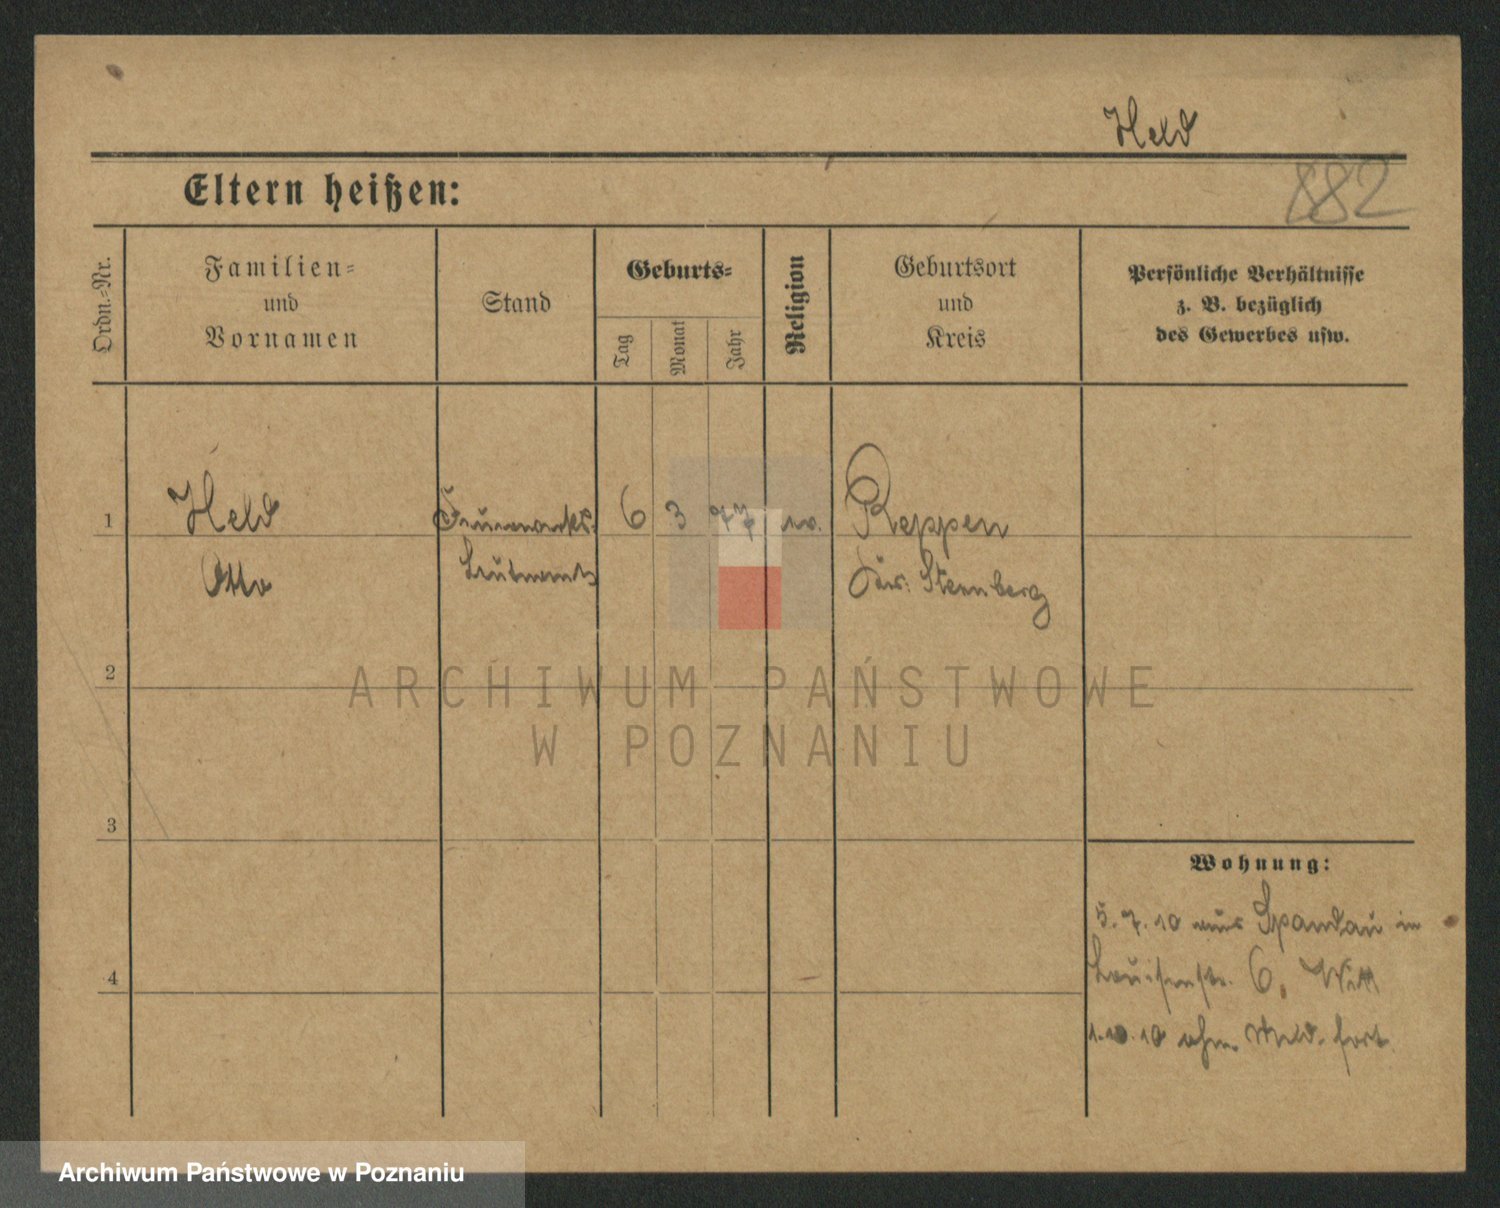 Held
882
Eltern heißen:
Ordn.-Nr.
Familien-
und
Vornamen
Stand
Geburts-
Tag
Monat
Jahr
Religion
Geburtsort
und
Kreis
Persönliche Verhältnisse
z. B. bezüglich
des Gewerbes usw.
1
Held
Feuerwerks-
6
3
77
ev.
Reppen
Otto
Leutnant
Kr. Sternberg
2
ARCHIWUM PAŃSTWOWE
W POZNANIU
3
Wohnung:
5.7.10 aus Spandau in
4
Louisenstr. 6, Witt
1.10.10 ohne Meld. fort.
Archiwum Państwowe w Poznaniu